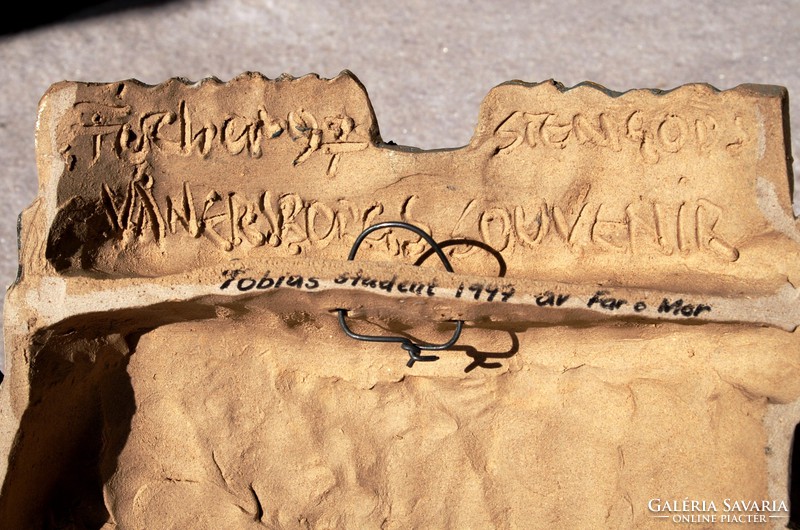 Fischer 97 STENGODS
VÄNERSBORGS SOUVENIR
Tobias student 1997 av Far o Mor
GALÉRIA SAVARIA
ONLINE PIACTÉR